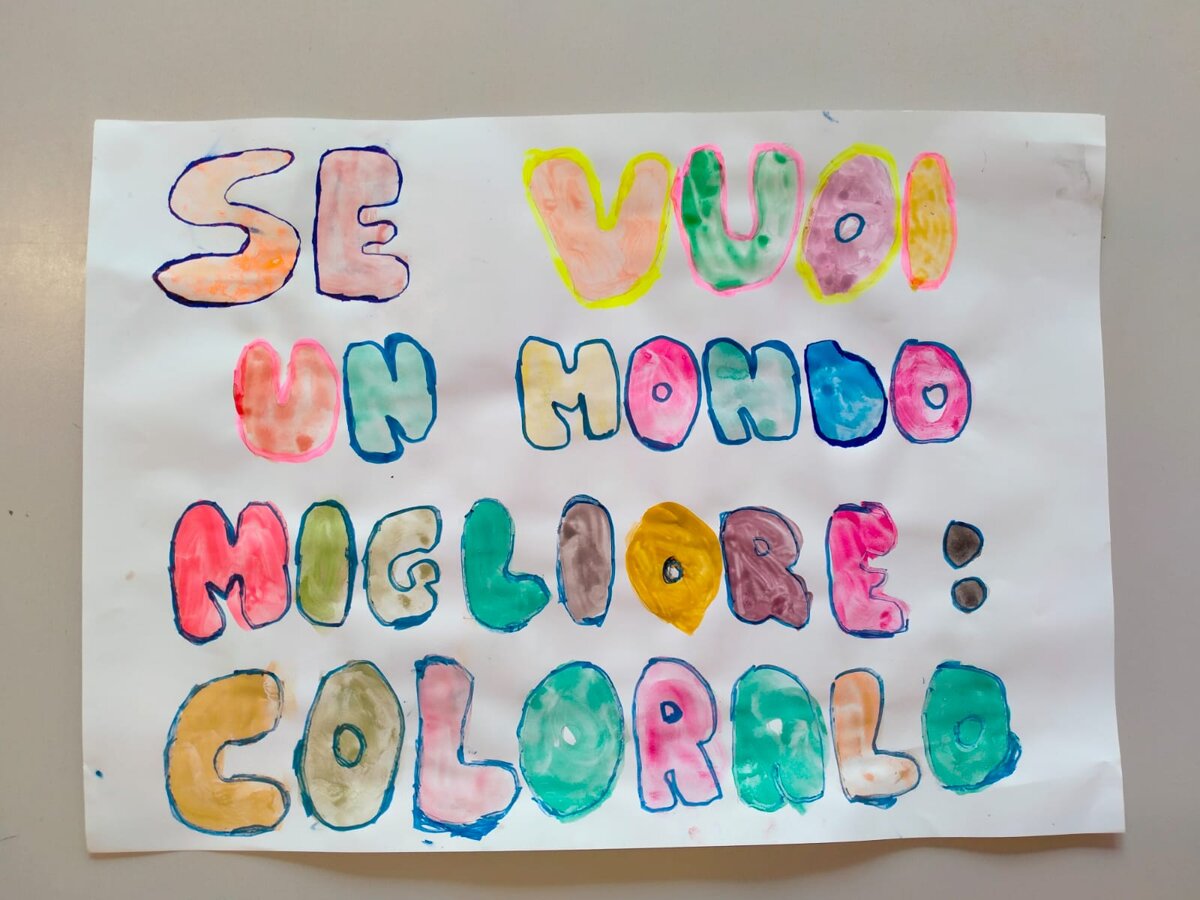 SE VUOI
UN MONDO
MIGLIORE:
COLORALO